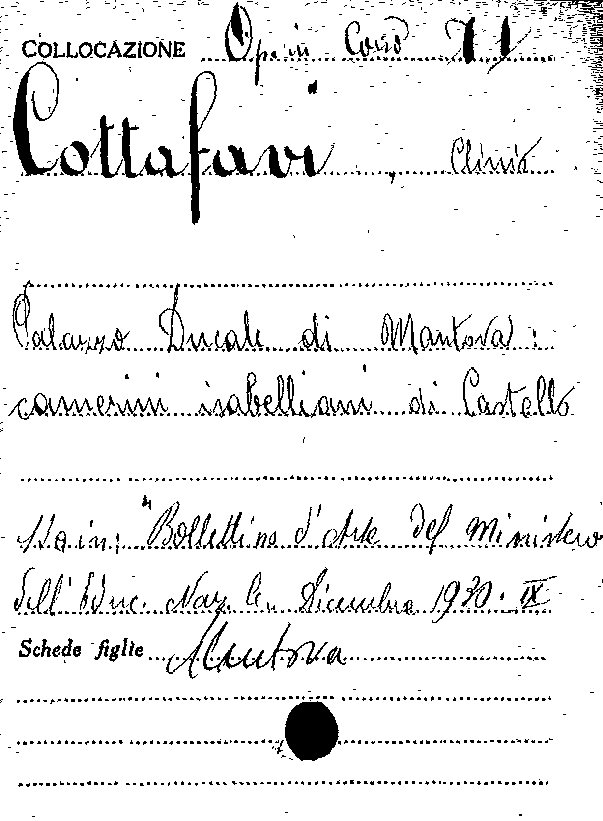 COLLOCAZIONE Op. in Corso 71
Cottafavi, Clinio
Palazzo Ducale di Mantova:
camerini isabelliani di Castello
in: "Bollettino d'Arte del Ministero
dell'Educ. Naz. Dicembre 1930. IX
Schede figlie Mantova